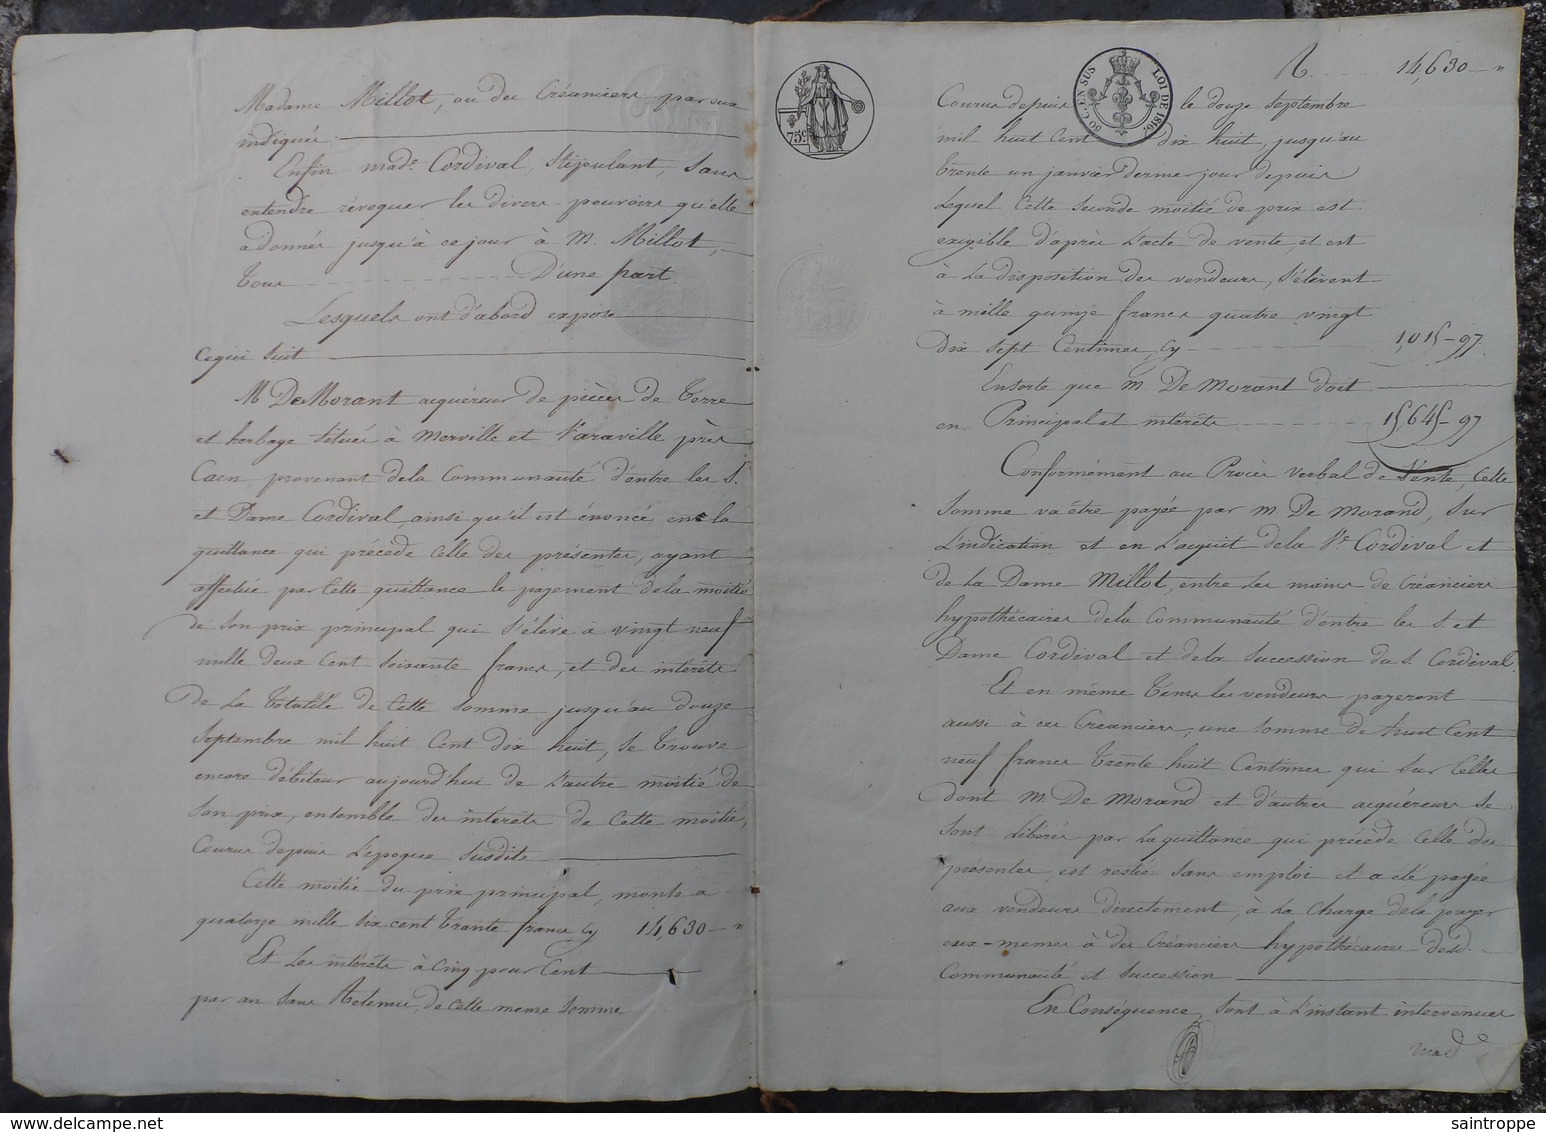 Madame Millot, ou des Créanciers par eux
indiqués.
Enfin made Cordival, Stipulant, Sans
entendre révoquer les divers pouvoirs qu'elle
a donnés jusqu'à ce jour à M. Millot,
Tous D'une part.
Lesquels ont d'abord exposé
Ce qui suit
M De Morant acquéreur de pièces de Terre
et herbage situés à Merville et Varaville près
Caen, provenant de la Communauté d'entre les S.
et Dame Cordival, ainsi qu'il est énoncé en la
quittance qui précède celle des présentes, ayant
affecté par cette quittance le payement de la moitié
de son prix principal qui s'élève à vingt neuf
mille deux cent soixante francs, et des intérêts
de la totalité de cette somme jusqu'au douze
Septembre mil huit cent dix huit, se trouve
encore débiteur aujourd'hui de l'autre moitié de
son prix, ensemble des intérêts de cette moitié,
Courus depuis l'époque susdite
Cette moitié du prix principal, monte à
quatorze mille six cent trente francs cy 14,630 — "
Et les intérêts à cinq pour cent
par an sans retenue, de cette meme somme
75c
50 C. EN SUS
LOI DE 1816
R. 14,630 — "
Courus depuis le douze septembre
mil huit cent dix huit, jusqu'au
trente un janvier dernier jour depuis
lequel cette seconde moitié de prix est
exigible d'après l'acte de vente, et est
à la disposition des vendeurs, s'élèvent
à mille quinze francs quatre vingt
dix sept centimes, cy 1,015-97.
Ensorte que M. De Morant doit
en Principal et intérêts 15645-97
Conformément au Procès verbal de Vente, cette
somme va être payée par M De Morand, sur
l'indication et en l'acquit de la Ve Cordival et
de la Dame Millot, entre les mains de Créanciers
hypothécaires de la Communauté d'entre les S. et
Dame Cordival et de la succession du S. Cordival.
Et en même tems les vendeurs payeront
aussi à ces Créanciers, une somme de huit cent
neuf francs trente huit centimes qui sur celles
dont M. De Morand et d'autres acquéreurs se
sont libérés par la quittance qui précède celle des
présentes, est restée sans emploi et a été payée
aux vendeurs directement, à la charge de la payer
eux-memes à des Créanciers hypothécaires desd.
Communauté et succession
En Conséquence, sont à l'instant intervenus
mad e
saintroppe